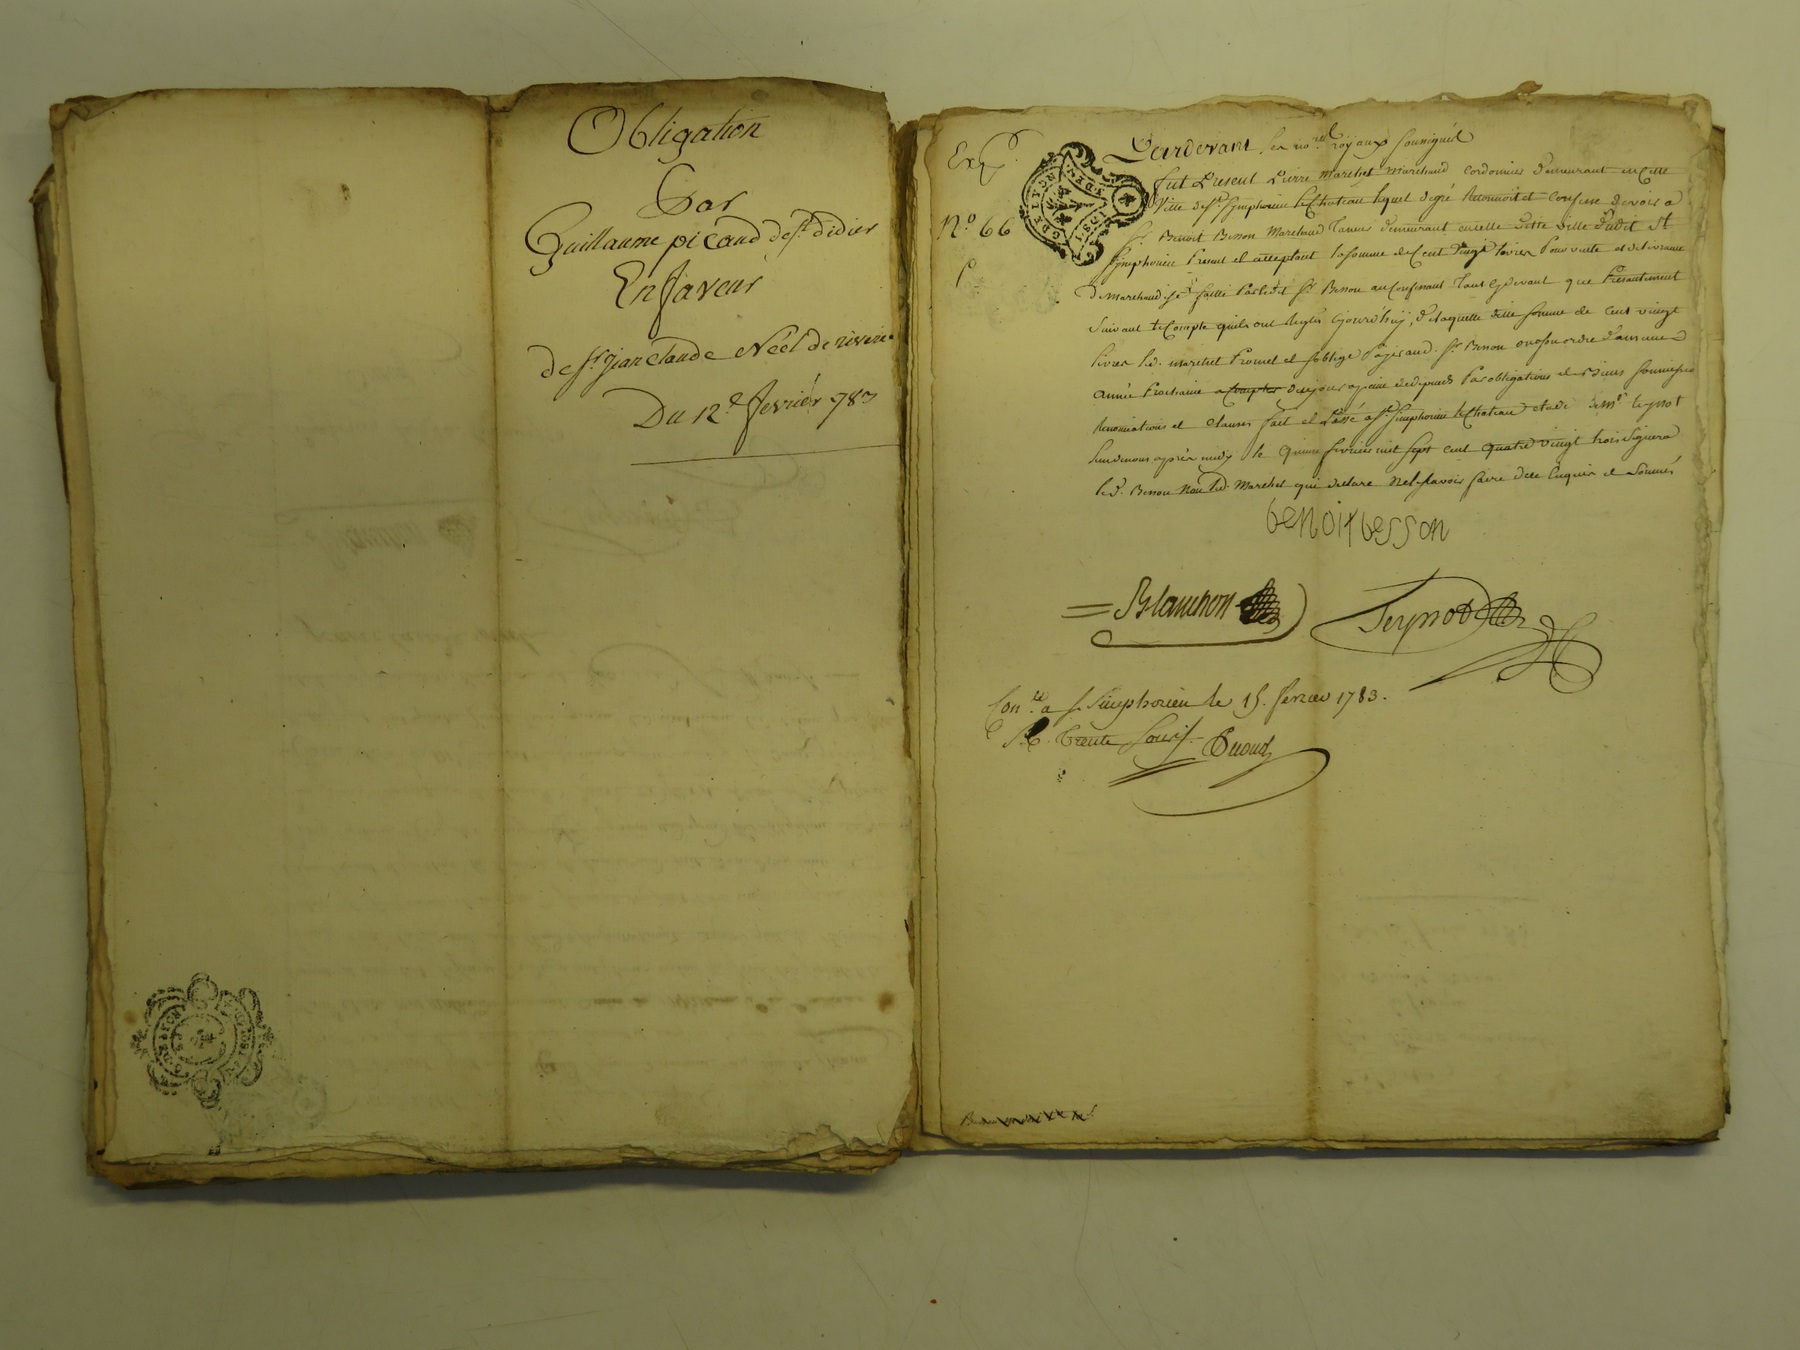 Obligation
Par
Guillaume picaud de st didier
En faveur
de sr jean claude Néel de riverie
Du 12e fevriér 1783
Exp.
N.o 66
GEN LYON
Pardevant les nores royaux soussignés
fut Present Pierre Marchet Marchand cordonnier demeurant en cette
Ville de st Symphorien le Chateau lequel degré Reconnoit et confesse devoir a
sr Benoit Besson Marchand Tanneur demeurant en celle ditte ville dudit st
Symphorien Present et acceptant la somme de Cent vingt livres Pour vente et delivrance
De Marchandise faitte Par ledit sr Besson au confessant Tant cydevant que Presentement
Suivant le Compte quils ont Reglés Cejourdhuy, de laquelle ditte somme de cent vingt
livres led. Marchet Promet et soblige Payer aud. sr Besson ou a son ordre dans une
année Prochaine a Compter de ce jour a peine de depends Par obligations de Biens soumissions
Renonciations et clauses fait et Passé a st Simphorien le Chateau etude de Me teynot
lun de nous après midy le Quinze fevrier mil sept cent quatre vingt trois signera
led. Besson Non led. Marchet qui declare Ne Scavoir faire dece Enquis et sommés
benoit besson
Blanchon
Teynot
Con.le a st Simphorien le 15. fevrier 1783.
R. Trente Sous